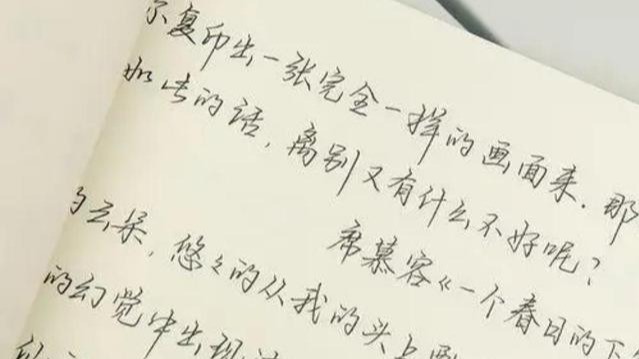 尔复印出一张完全一样的画面来.那
如此的话,离别又有什么不好呢?
席慕容《一个春日的下
的云朵,悠々的从我的头上
的幻觉中出现